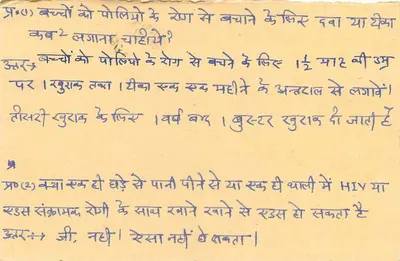 प्र०(1) बच्चों को पोलियो के रोग से बचाने के लिए दवा या टीका
कब2 लगाना चाहीये?
उत्तर→ बच्चों को पोलियो के रोग से बचने के लिए 1½ माह की उम्र
पर 1 खुराक तथा 1 टीका एक एक महीने के अन्तराल से लगावें।
तीसरी खुराक के लिए 1 वर्ष बाद 1 बुस्टर खुराक दी जाती है
प्र०(2) क्या एक ही घड़े से पानी पीने से या एक ही थाली में HIV या
एडस संक्रामक रोगी के साथ खाने खाने से एडस हो सकता है
उत्तर→ जी, नही। ऐसा नहीं हो सकता।